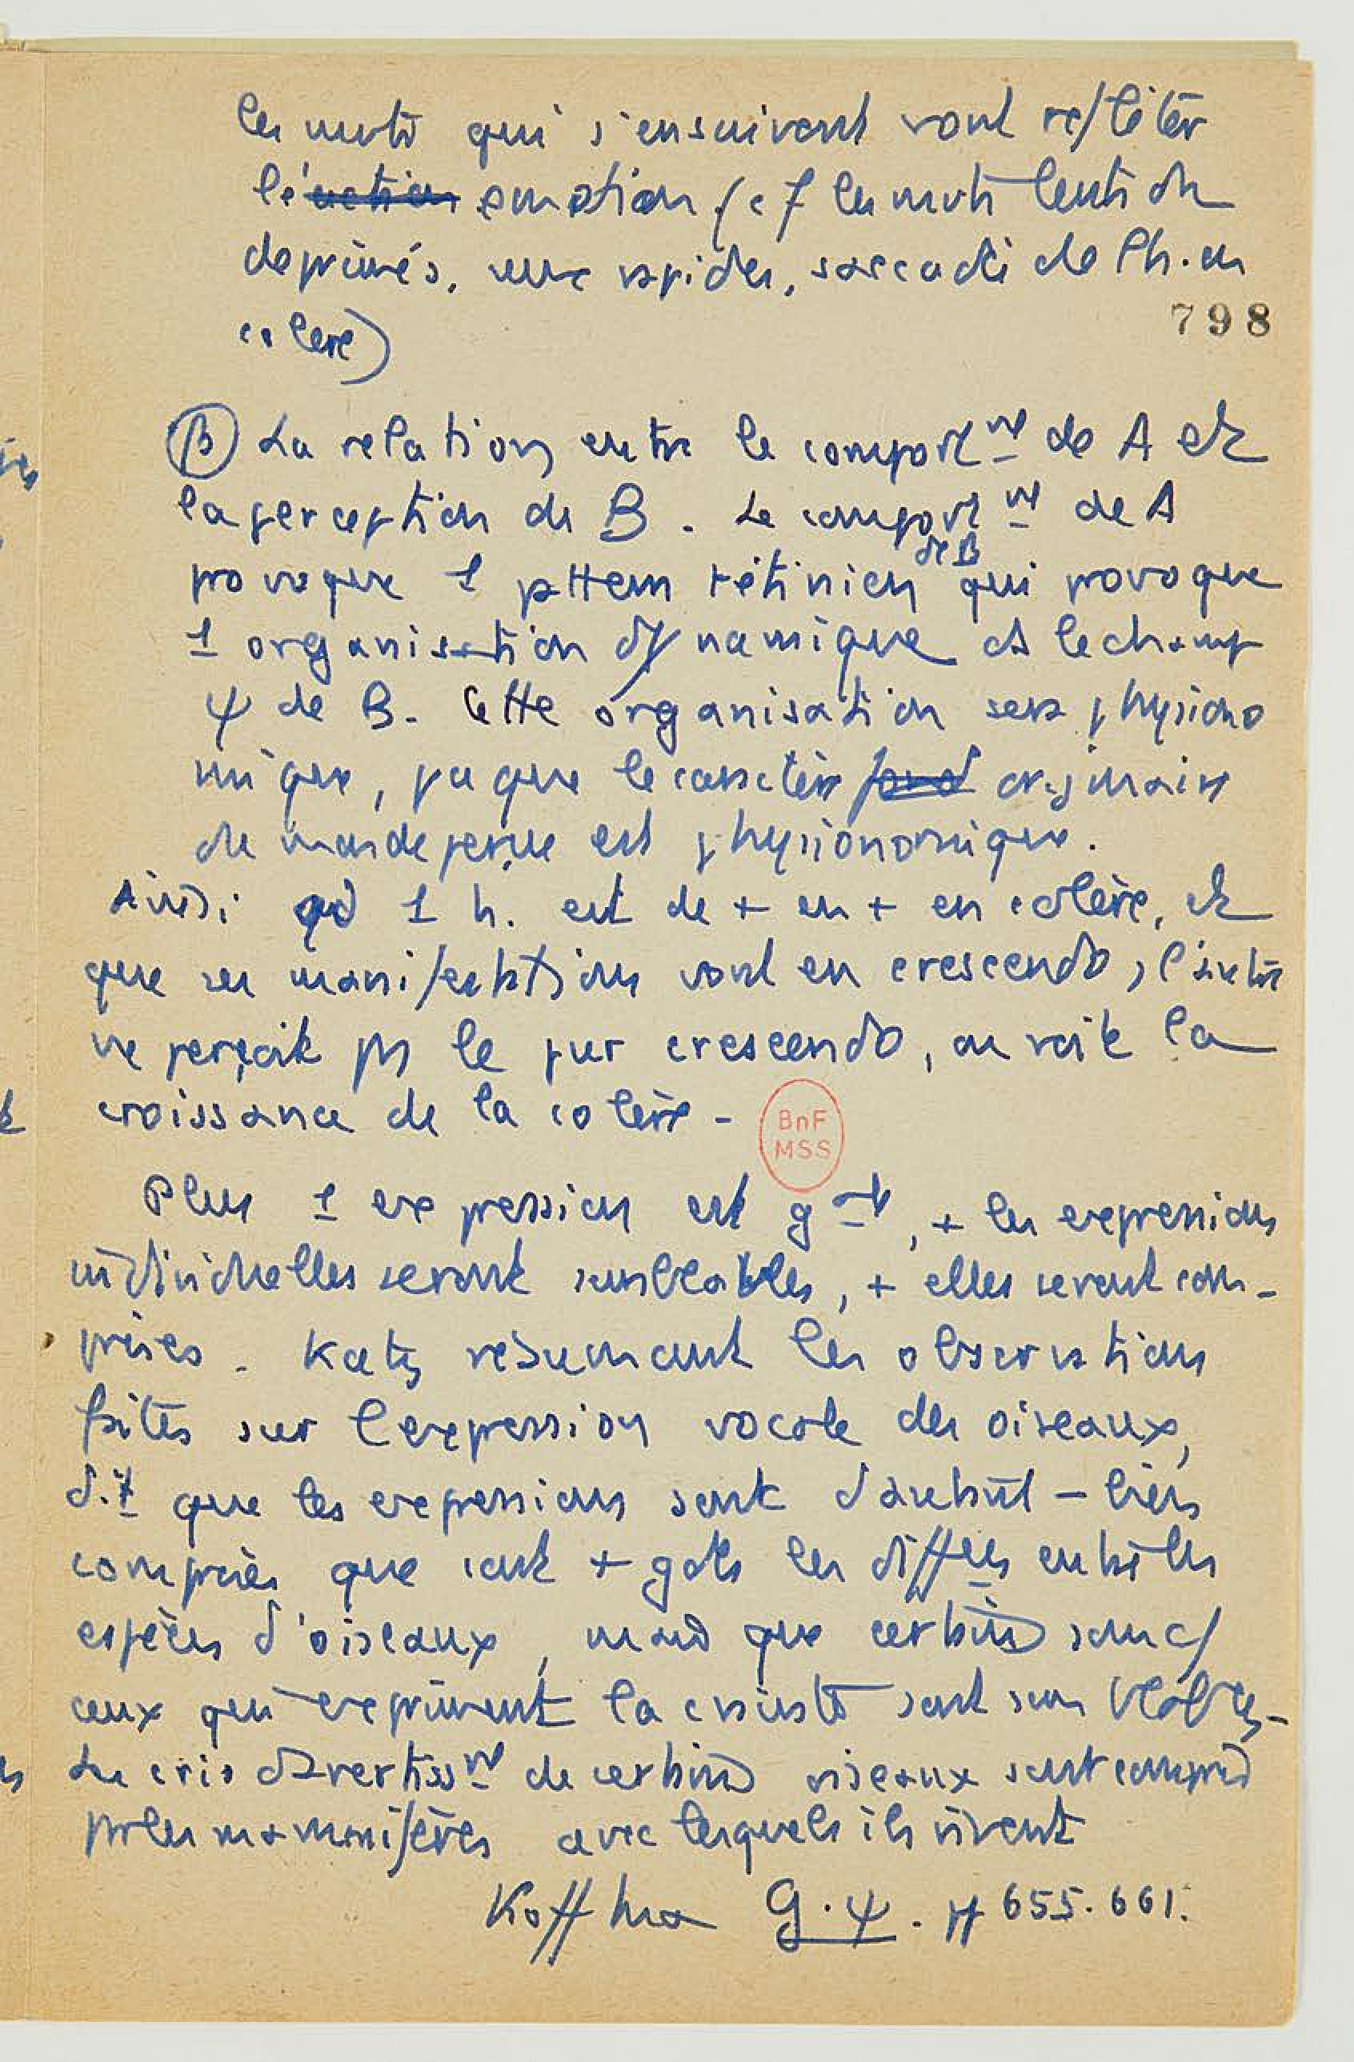 les mvts qui s'ensuivent vont refléter
l'é emotion (cf les mvts lents du
deprimés, ceux rapides, saccadés de l'h. en
colère)
798
β La relation entre le comportmt de A et
la perception de B. Le comportmt de A
provoque 1 pattern rétinien de B qui provoque
1 organisation dynamique ds le champ
ψ de B. Cette organisation sera physiono
mique, pq que le caractère originaire
du monde perçue est physionomique.
Ainsi qd 1 h. est de + en + en colère, et
que ses manifestations vont en crescendo, l'autre
ne perçoit ps le pur crescendo, on voit la
croissance de la colère -
BnF
MSS
Plus 1 expression est , + les expressions
individuelles seront semblables, + elles seront com-
prises. Katz résumant les observations
faites sur l'expression vocale des oiseaux,
dit que les expressions sont d'autant - bien
comprises que sont + gdes les diffces entre les
espèces d'oiseaux, mais que certains sons c/
ceux qui expriment la crainte sont
Les cris d'avertissmt de certains oiseaux sont compris
pr les mammifères avec lesquels ils vivent
Koffka G.ψ. pp 655.661.